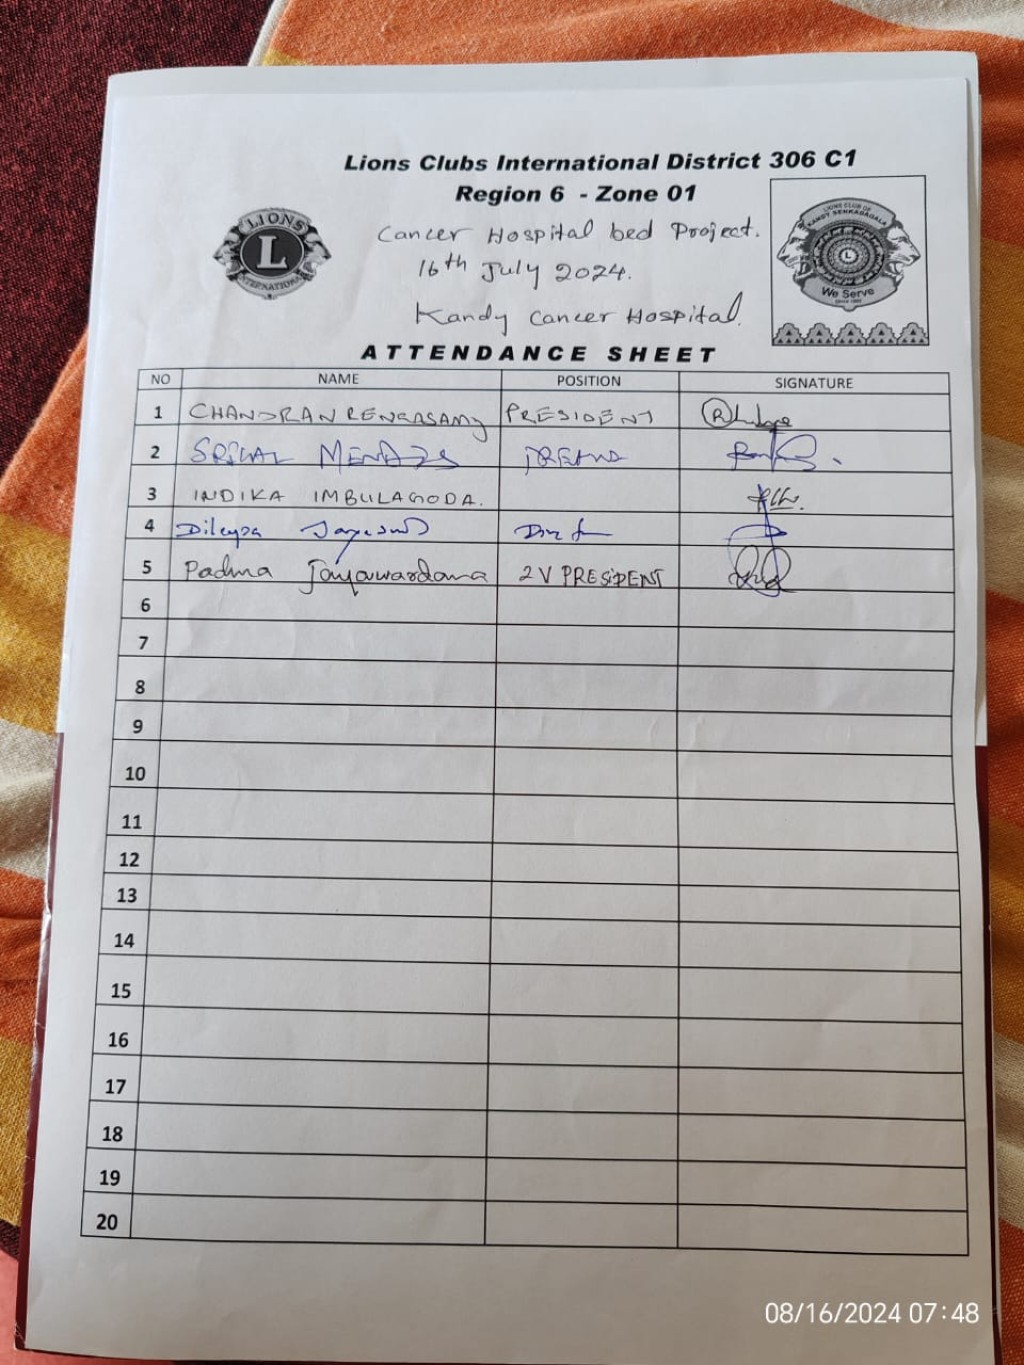 Lions Clubs International District 306 C1
Region 6 - Zone 01
LIONS
L
INTERNATIONAL
LIONS CLUB OF
KANDY SENKADAGALA
L
We Serve
Cancer Hospital bed Project.
16th July 2024.
Kandy Cancer Hospital.
ATTENDANCE SHEET
NO NAME POSITION SIGNATURE
1 CHANDRAN RENGASAMY PRESIDENT
2
3 INDIKA IMBULAGODA.
4
5 Padma Jayawardana 2 V PRESIDENT
6
7
8
9
10
11
12
13
14
15
16
17
18
19
20
08/16/2024 07:48